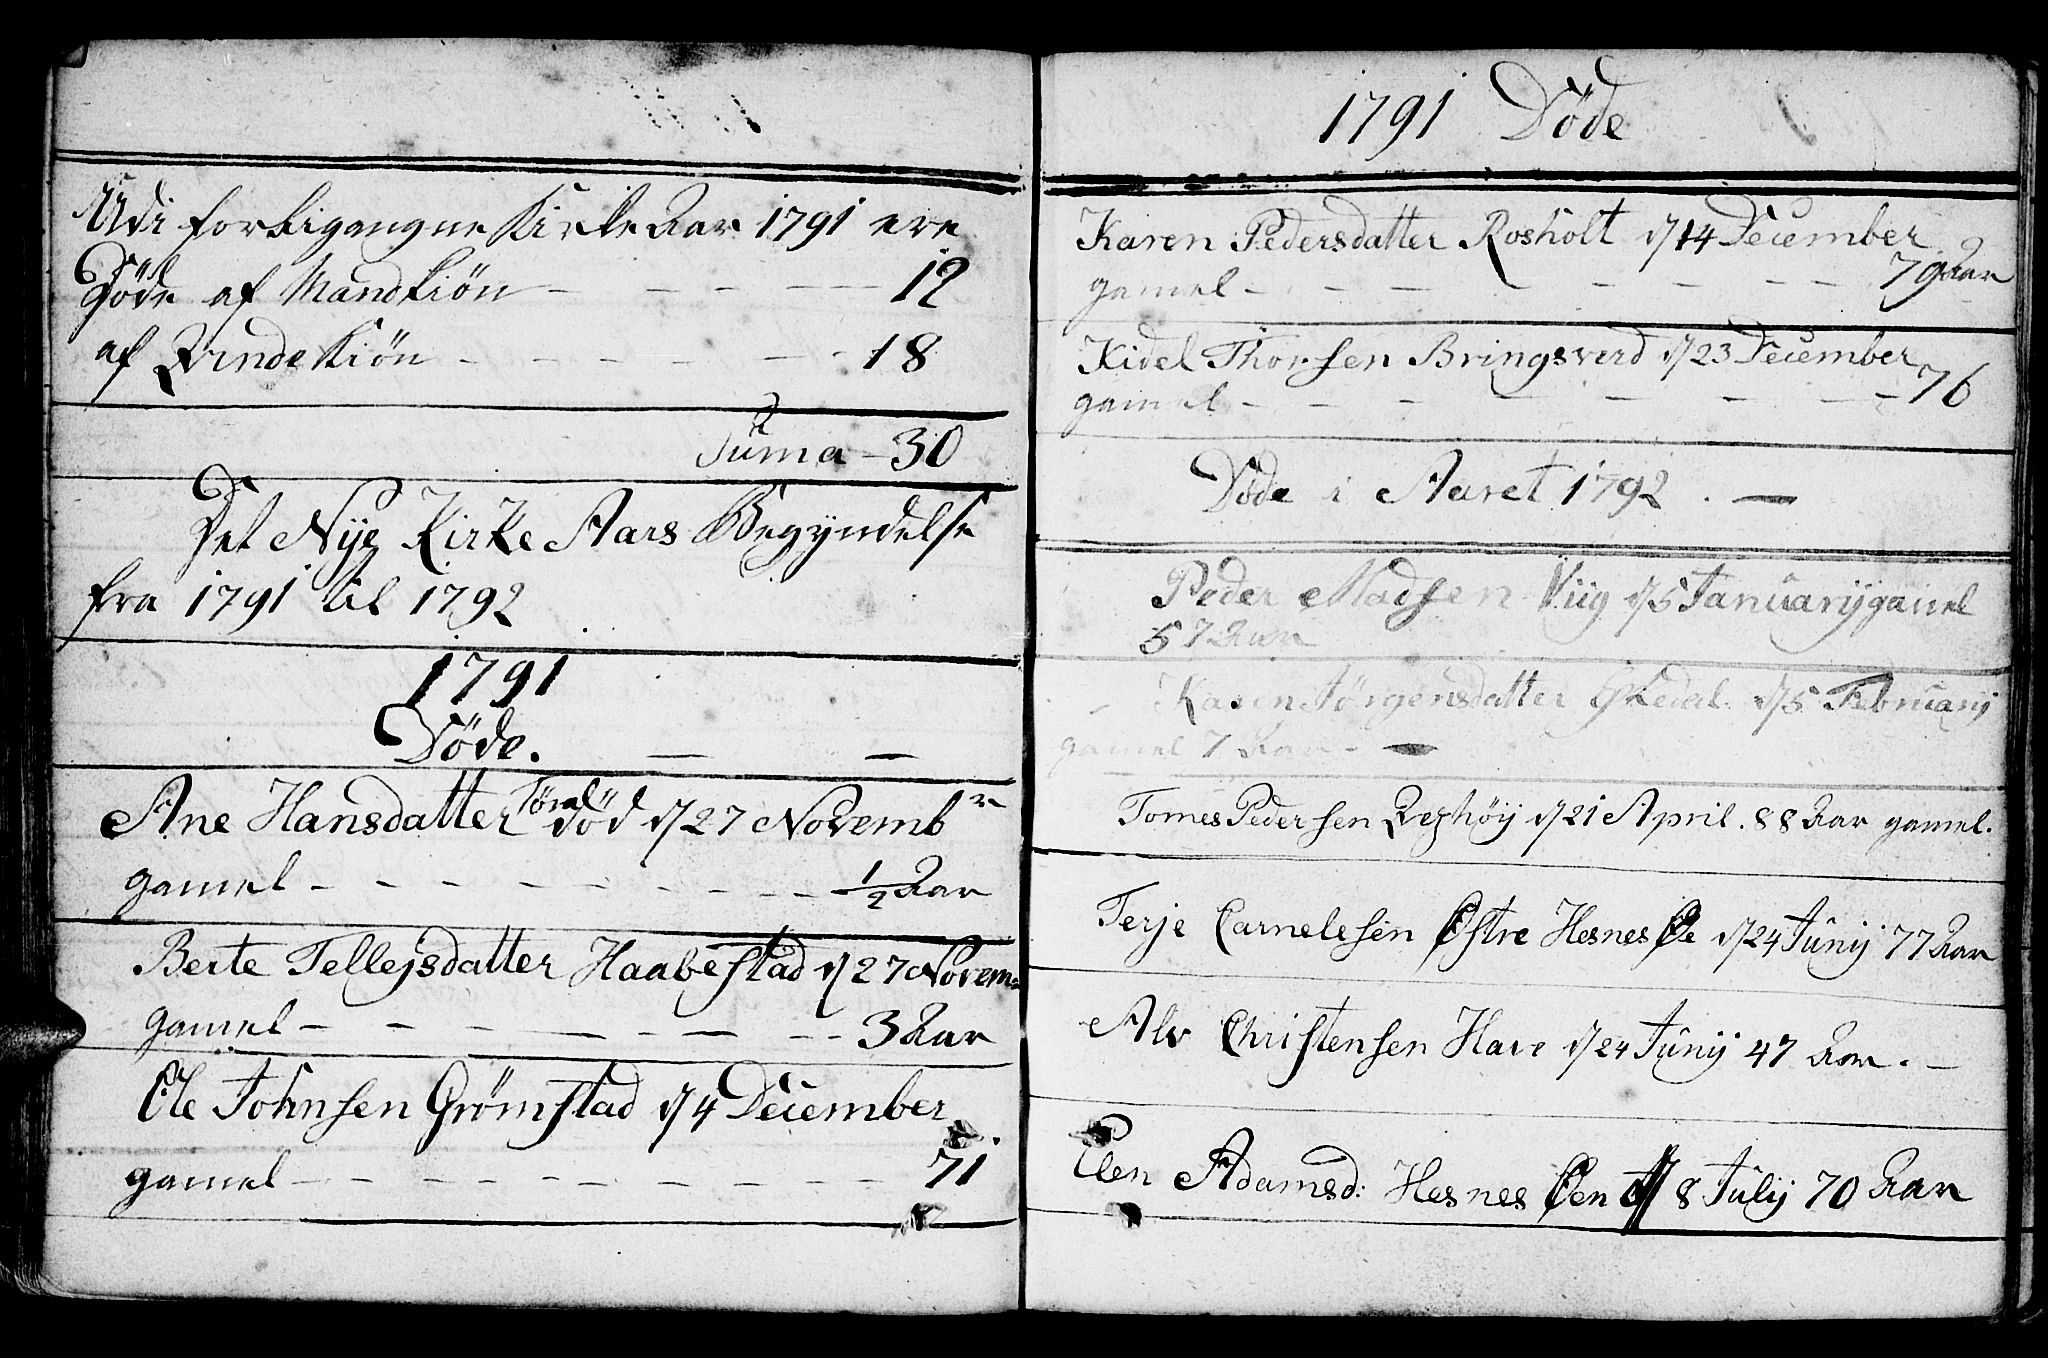 Udi forbigangne Kirke Aar 1791 ere
Døde af Mandkiøn - - - - 12
af Qvinde Kiøn - - - - - - 18
Suma - 30
Det Nye Kirke Aars Begyndelse
fra 1791 til 1792
1791
Døde. — —
Ane Hansdatter død d/27 Novemb
gamel - - - - - - - - - 1/2 Aar
Berte Tellejsdatter Haabestad d/27 Novem=
gamel - - - - - - - 3 Aar
Ole Johnsen Grømstad d/4 December
gamel - - - - - - - - - 71.
1791 Døde
Karen Pedersdatter Rosholt d/14 December
gamel - - - - - - - - 79 Aar
Kidel Thorsen Bringsverd d/23 December
gamel - - - - - - - 76
Døde i Aaret 1792. —
Peder Madsen Viig d/5 Januarij gamel
57 Aar
Karen Jørgensdatter d/5 Februarij
gamel 7 Aar - —
Tomes Pedersen d/21 April. 88 Aar gamel.
Terje Carnelesen Østre Hesnes Øe d/24 Junij 77 Aar
Alv Christensen Have d/24 Junij 47 Aar. —
Elen Adamsd: Hesnes Øen d/8 Julij 70 Aar